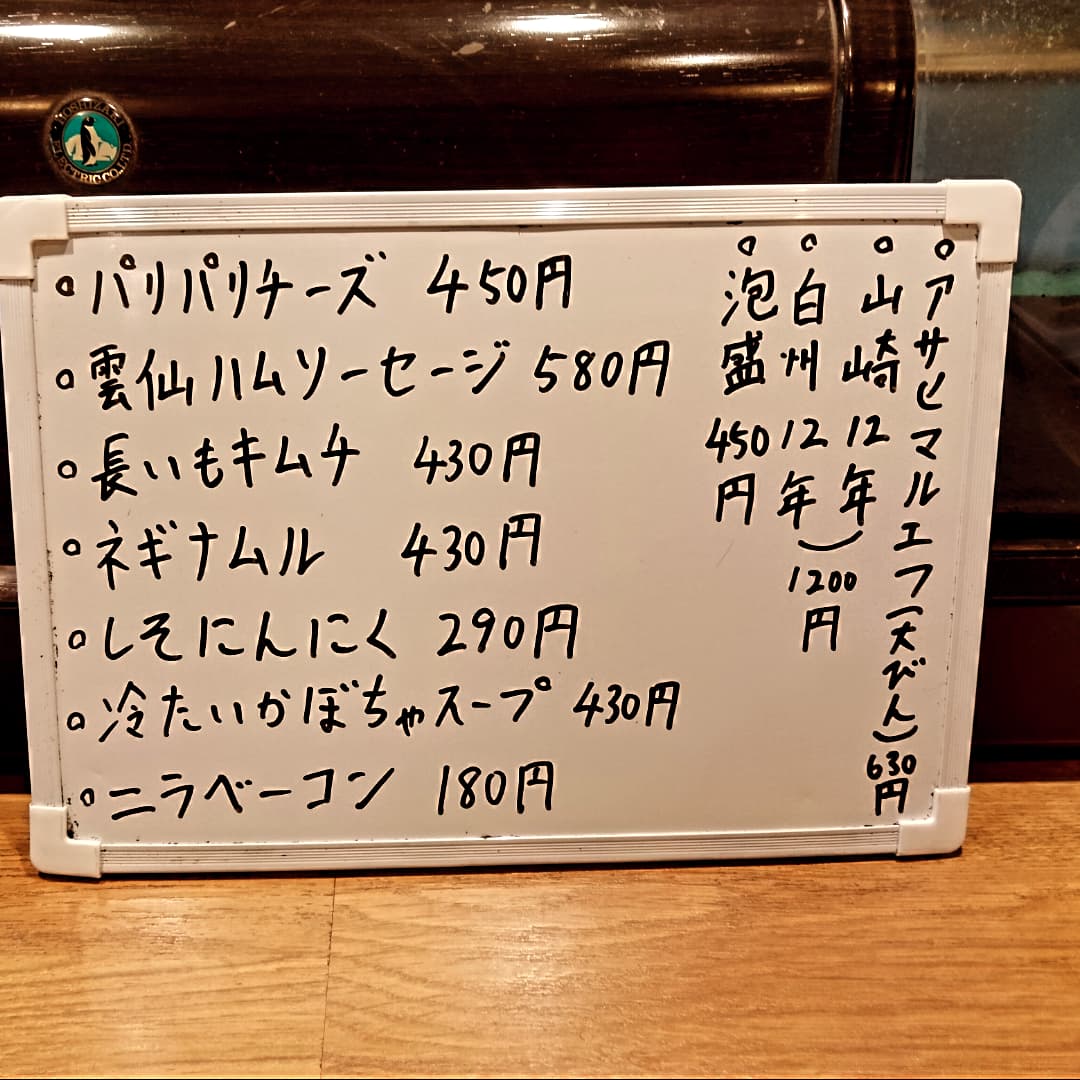 HOSHIZAKI ELECTRIC CO.,LTD.
。パリパリチーズ 450円
。雲仙ハムソーセージ 580円
。長いもキムチ 430円
。ネギナムル 430円
。しそにんにく 290円
。冷たいかぼちゃスープ 430円
。ニラベーコン 180円
。アサヒマルエフ(大びん) 630円
。山崎12年
。白州12年
) 1200円
。泡盛 450円